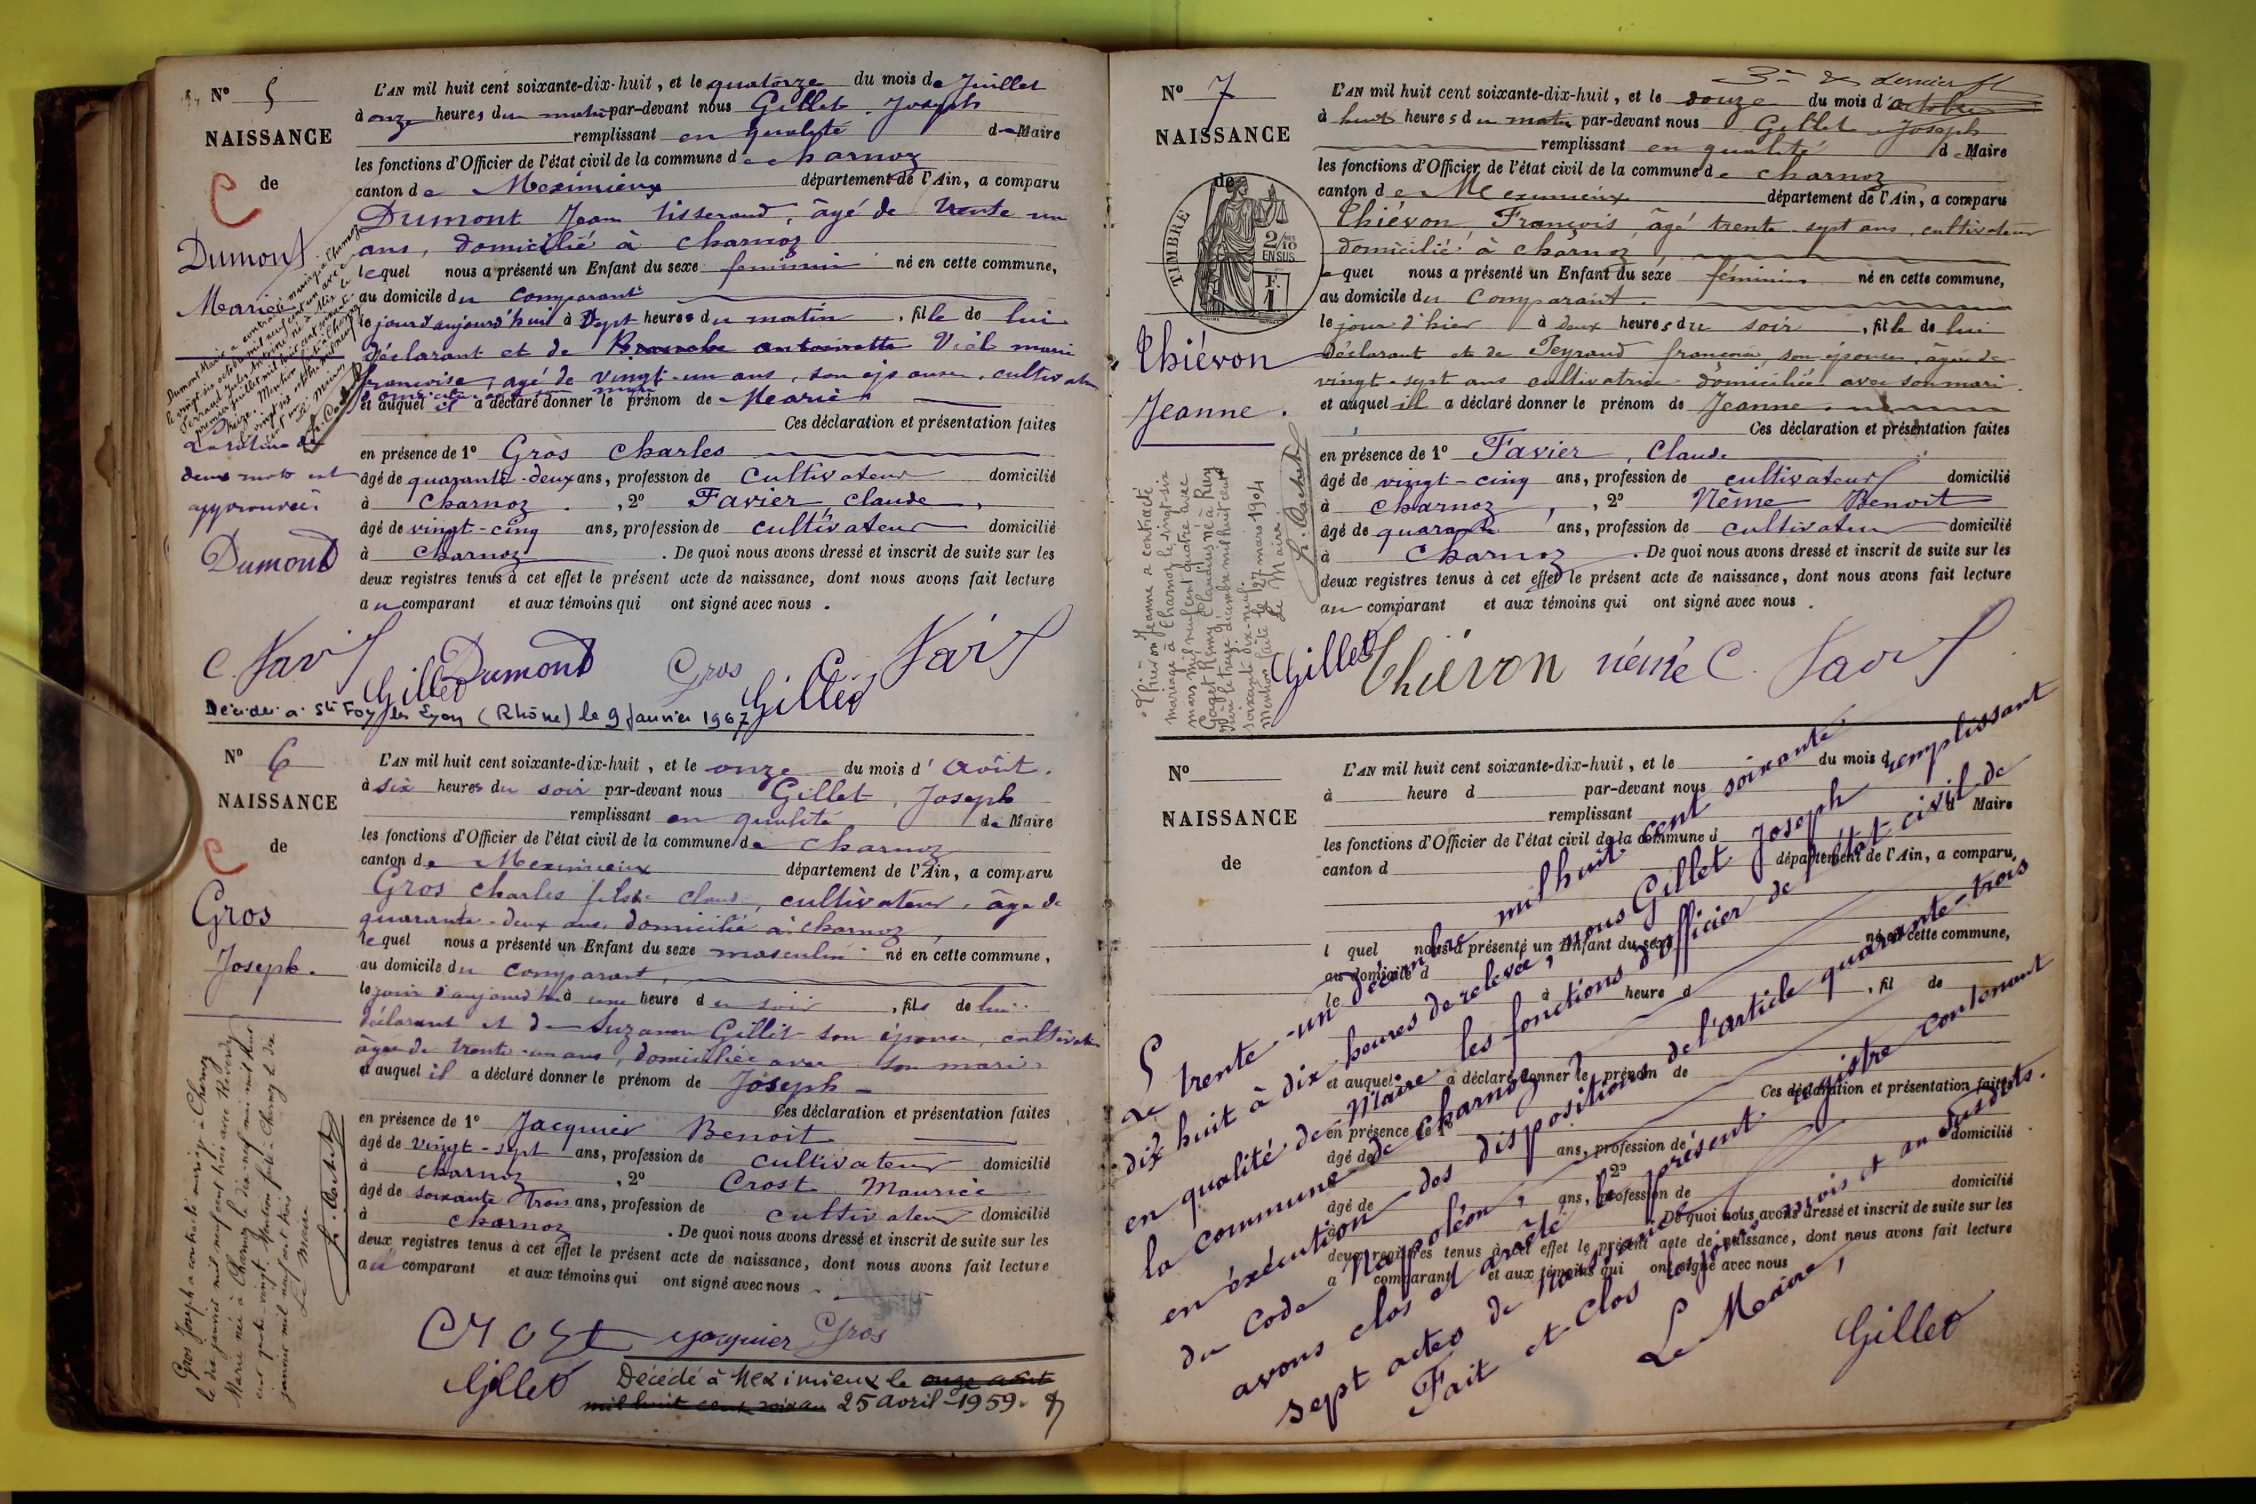 N° 5
NAISSANCE
de
Dumont
Marie
L'AN mil huit cent soixante-dix-huit, et le quatorze du mois de Juillet
à onze heures du matin par-devant nous Gillet Joseph
remplissant en qualité de Maire
les fonctions d'Officier de l'état civil de la commune de charnoz
canton de Meximieux département de l'Ain, a comparu
Dumont Jean tisserand, âgé de trente un
ans, domicilié à charnoz
lequel nous a présenté un Enfant du sexe feminin né en cette commune,
au domicile du comparant
le jour d'aujourd'hui à Sept heures du matin, fille de lui
déclarant et de Viel marie
francoise, agé de vingt-un ans, son épouse, cultivat
et auquel il a déclaré donner le prénom de Marie
Ces déclaration et présentation faites
en présence de 1° Gros Charles
âgé de quarante-deux ans, profession de cultivateur domicilié
à charnoz, 2° Favier, claude,
âgé de vingt-cinq ans, profession de cultivateur domicilié
à charnoz. De quoi nous avons dressé et inscrit de suite sur les
deux registres tenus à cet effet le présent acte de naissance, dont nous avons fait lecture
au comparant et aux témoins qui ont signé avec nous.
deux mots est
approuvée
Dumont
Gillet Dumont Gros Gillet
Décédée à Ste Foy les Lyon (Rhône) le 9 Janvier 1967
N° 6
NAISSANCE
de
Gros
Joseph.
L'AN mil huit cent soixante-dix-huit, et le onze du mois d'Août.
à six heures du soir par-devant nous Gillet, Joseph
remplissant en qualité de Maire
les fonctions d'Officier de l'état civil de la commune de charnoz
canton de Meximieux département de l'Ain, a comparu
Gros charles fils de claude, cultivateur, âgé de
quarante-deux ans, domicilié à charnoz,
lequel nous a présenté un Enfant du sexe masculin né en cette commune,
au domicile du comparant,
le jour d'aujourd'hui à une heure du soir, fils de lui
déclarant et de Suzanne Gillet son épouse, cultivat
âgée de trente-un ans, domiciliée avec son mari
et auquel il a déclaré donner le prénom de Joseph
Ces déclaration et présentation faites
en présence de 1° Jacquier Benoit
âgé de vingt-sept ans, profession de cultivateur domicilié
à charnoz, 2° Crost Maurice
âgé de soixante trois ans, profession de cultivateur domicilié
à charnoz. De quoi nous avons dressé et inscrit de suite sur les
deux registres tenus à cet effet le présent acte de naissance, dont nous avons fait lecture
au comparant et aux témoins qui ont signé avec nous.
Gros Joseph a contracté mariage à Charnoz
le dix janvier mil neuf cent trois avec
Marie née à Charnoz le dix-neuf mai mil huit
cent quatre-vingt. Mention faite à Charnoz le dix
janvier mil neuf cent trois
Le Maire
Crost Jacquier Gros
Gillet
Décédé à Meximieux le onze août
mil huit cent soixan 25 avril-1959.
N° 7
NAISSANCE
de
TIMBRE
2/10
EN SUS
F.
1
Thiévon
Jeanne.
3me & dernier ft
L'AN mil huit cent soixante-dix-huit, et le douze du mois d'octobre
à huit heures du matin par-devant nous Gillet Joseph
remplissant en qualité de Maire
les fonctions d'Officier de l'état civil de la commune de charnoz
canton de Meximieux département de l'Ain, a comparu
Thiévon François âgé trente-sept ans, cultivateur
domicilié à charnoz,
lequel nous a présenté un Enfant du sexe féminin né en cette commune,
au domicile du comparant.
le jour d'hier à deux heures du soir, fille de lui
déclarant et de Peyraud, son épouse, âgée de
vingt-sept ans cultivatrice domiciliée avec son mari.
et auquel il a déclaré donner le prénom de Jeanne.
Ces déclaration et présentation faites
en présence de 1° Favier, Claude
âgé de vingt-cinq ans, profession de cultivateur domicilié
à charnoz, 2° Nême Benoit
âgé de quarante ans, profession de cultivateur domicilié
à charnoz. De quoi nous avons dressé et inscrit de suite sur les
deux registres tenus à cet effet le présent acte de naissance, dont nous avons fait lecture
au comparant et aux témoins qui ont signé avec nous.
Thiévon Jeanne a contracté
mariage à Charnoz le vingt-six
mars mil neuf cent quatre avec
Gaget Rémy Claudius né à Ruy
Isère le treize décembre mil huit cent
soixante dix-neuf.
Mention faite le 27 mars 1904
Le Maire
Gillet Thiévon néme C.
N°
NAISSANCE
de
L'AN mil huit cent soixante-dix-huit, et le du mois d
à heure d par-devant nous
remplissant d Maire
les fonctions d'Officier de l'état civil de la commune d
canton d département de l'Ain, a comparu
l quel nous a présenté un Enfant du sexe né en cette commune,
au domicile d
le à heure d, fil de
et auquel a déclaré donner le prénom de
Ces déclaration et présentation faites
en présence de 1°
âgé de ans, profession de domicilié
à, 2°
âgé de ans, profession de domicilié
à. De quoi nous avons dressé et inscrit de suite sur les
deux registres tenus à cet effet le présent acte de naissance, dont nous avons fait lecture
a comparant et aux témoins qui ont signé avec nous
Le trente-un décembre mil huit cent soixante
dix huit à dix heures de relevée, nous Gillet Joseph remplissant
en qualité de Maire les fonctions d'officier de l'état civil de
la commune de charnoz,
en exécution des dispositions de l'article quarante-trois
du Code Napoléon,
avons clos et arrêté le présent registre contenant
sept actes de naissance
Fait et clos les jour mois et an susdits.
Le Maire,
Gillet